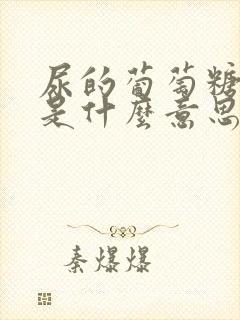 尿的葡萄糖
是什麼意思
秦爆爆